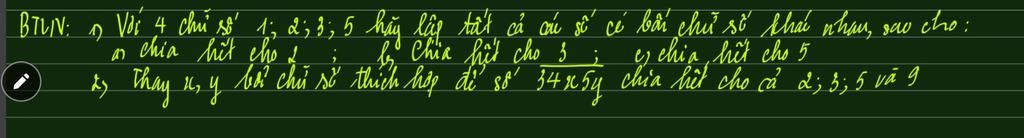 BTVN: 1) Với 4 chữ số 1; 2; 3; 5 hãy lập tất cả các số có bốn chữ số khác nhau, sao cho:
a) chia hết cho 2 ; b) Chia hết cho 3 ; c) chia hết cho 5
2) Thay x, y bởi chữ số thích hợp để số 34x5y chia hết cho cả 2; 3; 5 và 9